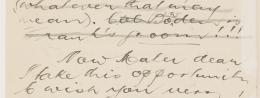 (whatever that may
mean). Col Roder is
Frank's groom!!!
Now Mater dear
I take this opportunity
to wish you very